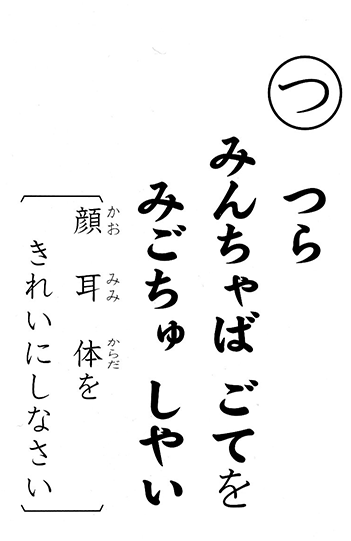 つ
つら
みんちゃば ごてを
みごちゅ しやい
顔 耳 体を
かお みみ からだ
きれいにしなさい